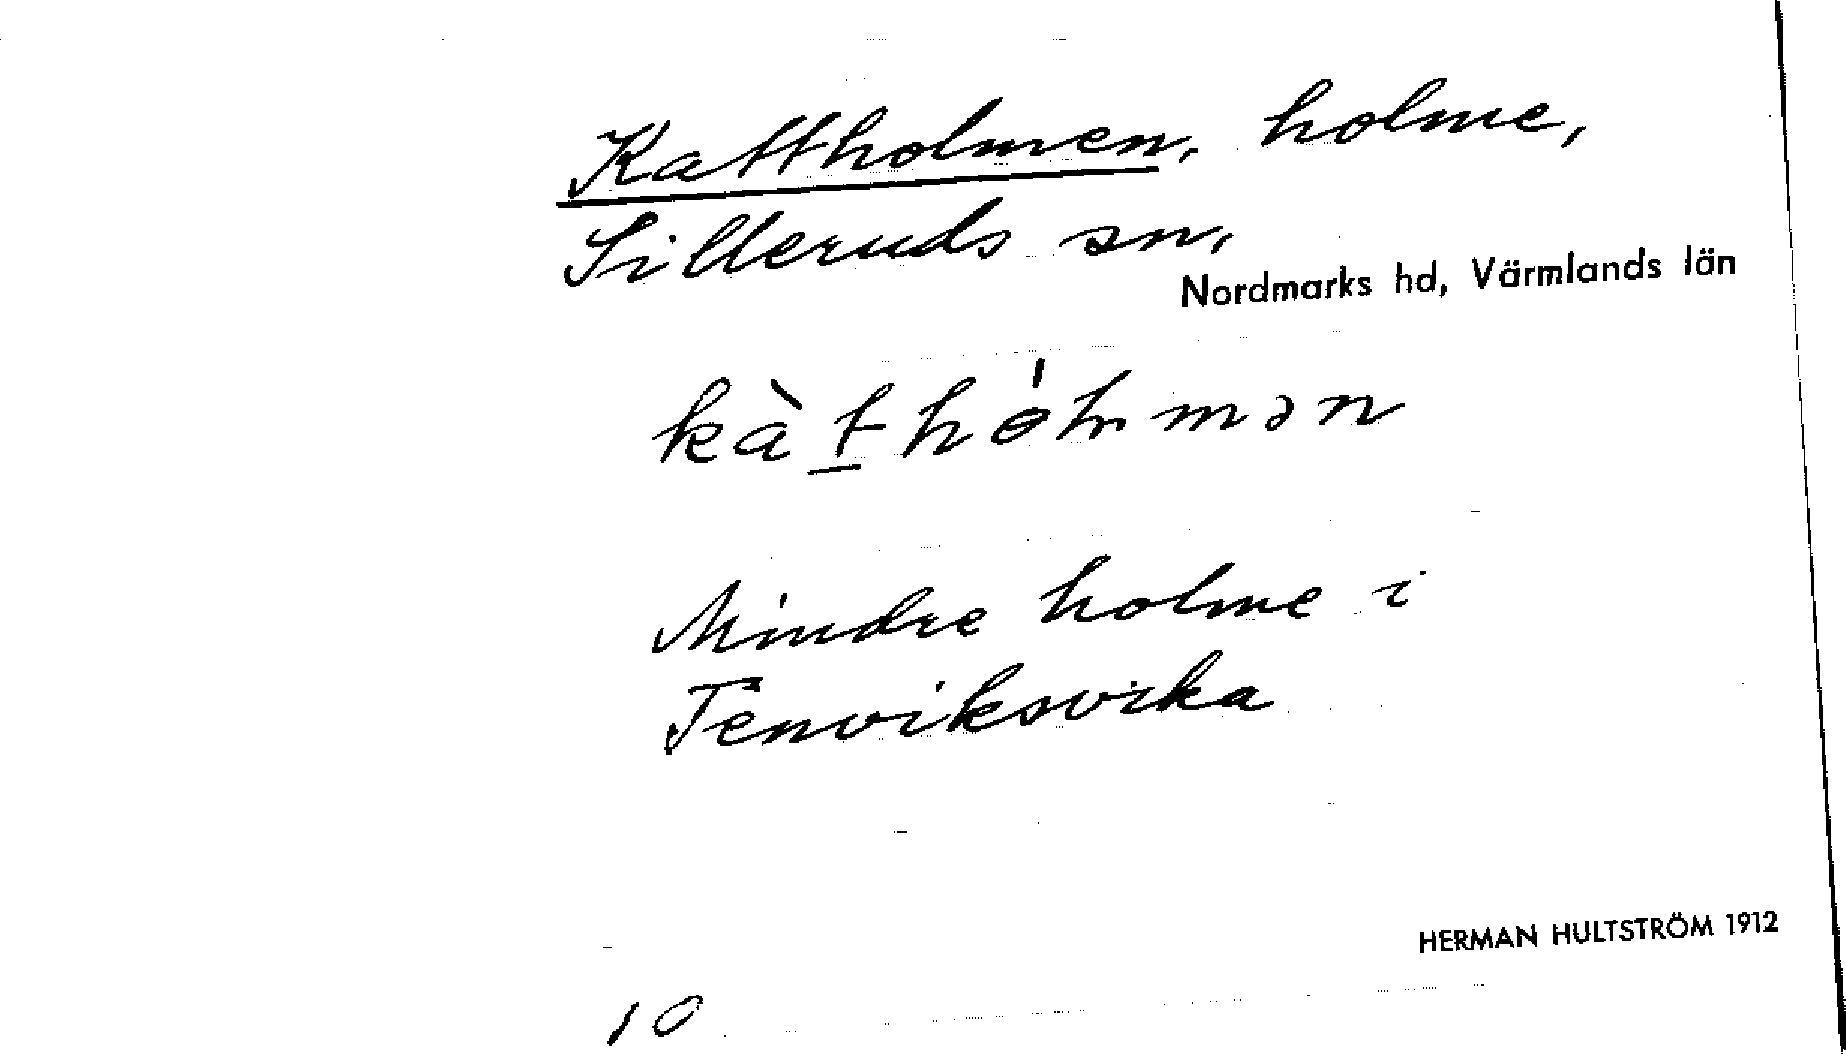 Kattholmen, holme,
Silleruds sn,
Nordmarks hd, Värmlands län
Mindre holme i
Tenviksvika
HERMAN HULTSTRÖM 1912
10